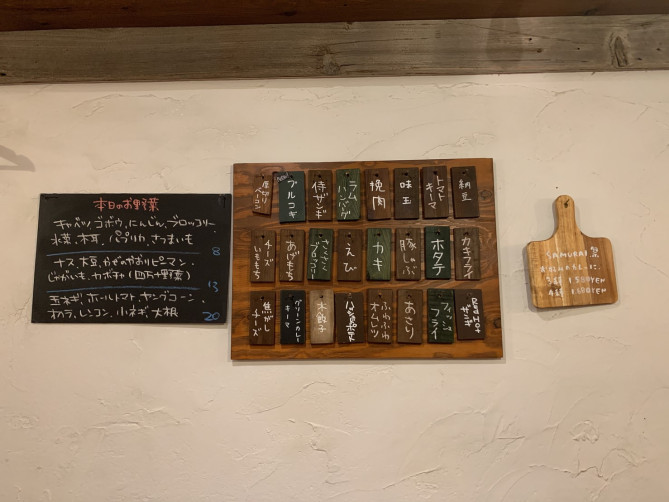 本日のお野菜
キャベツ、ゴボウ、にんじん、ブロッコリー、
水菜、木耳、パプリカ、さつまいも
8
ナス、大豆、かぞのかおりピーマン、
じゃがいも、カボチャ(四万十野菜)
13
玉ねぎ、ホールトマト、ヤングコーン、
オクラ、レンコン、小ネギ、大根
20
厚切りベーコン
プルコギ
侍ザンギ
ラムハンバーグ
挽肉
味玉
トマトキーマ
納豆
チーズいももち
あげもち
さくさくブロッコリー
えび
カキ
豚しゃぶ
ホタテ
カキフライ
焦がしチーズ
グリーンカレーキーマ
水餃子
ふわふわオムレツ
あさり
フィッシュフライ
Red Hotザンギ
SAMURAI.祭
1580YEN
1680YEN